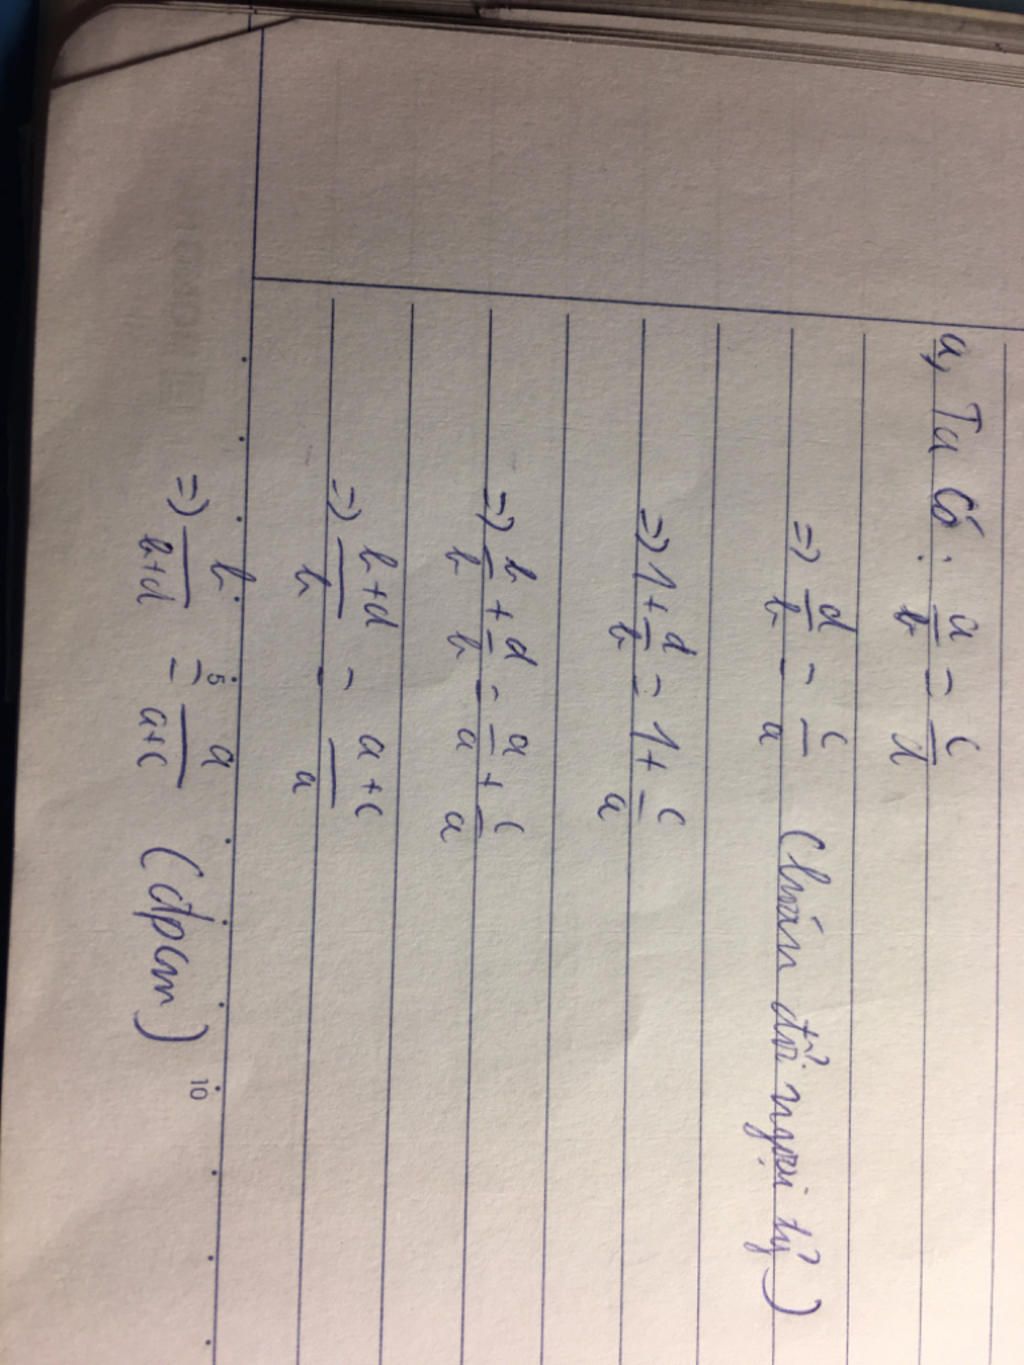 a, Ta có: a/b = c/d
=> d/b = c/a (hoán đổi ngoại tỷ)
=> 1 + d/b = 1 + c/a
=> b/b + d/b = a/a + c/a
=> b+d/b = a+c/a
5 10
=> b/b+d = a/a+c (đpcm)